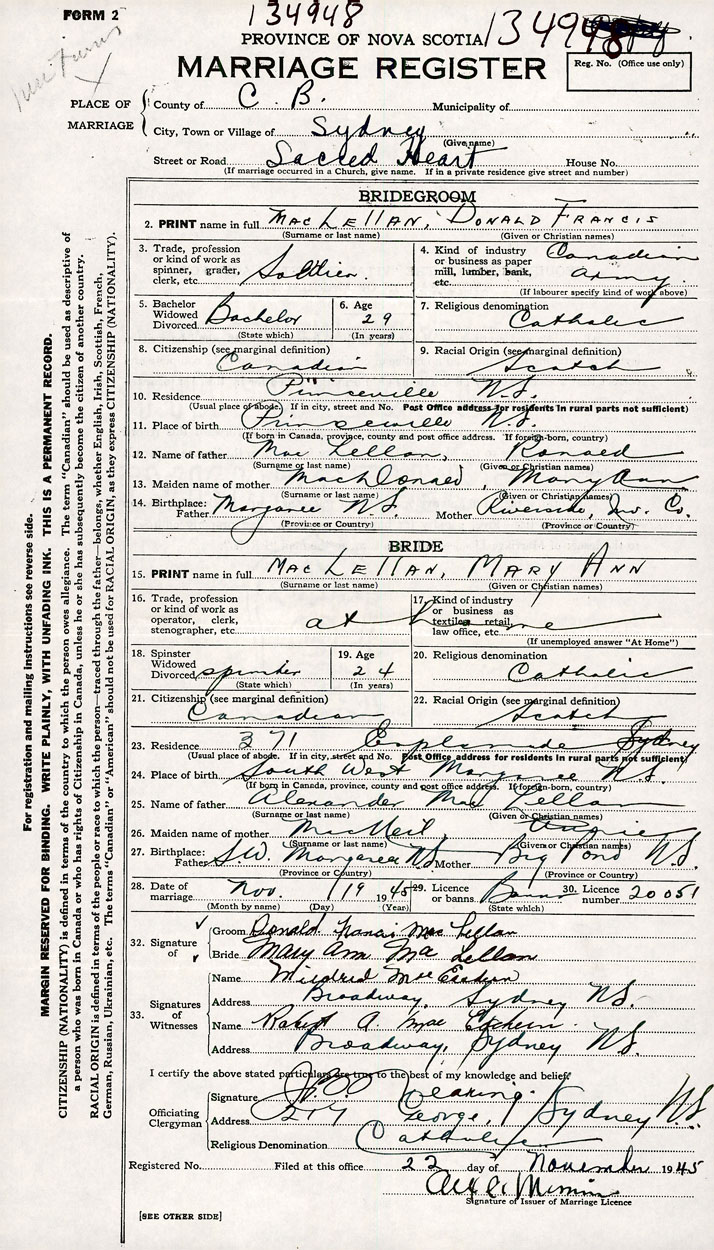 FORM 2
134948
134948
PROVINCE OF NOVA SCOTIA
MARRIAGE REGISTER
Reg. No. (Office use only)
PLACE OF MARRIAGE
County of C. B. Municipality of
City, Town or Village of Sydney
(Give name)
Street or Road Sacred Heart House No.
(If marriage occurred in a Church, give name. If in a private residence give street and number)
BRIDEGROOM
2. PRINT name in full MacLellan, Donald Francis
(Surname or last name) (Given or Christian names)
3. Trade, profession or kind of work as spinner, grader, clerk, etc. Soldier
4. Kind of industry or business as paper mill, lumber, bank, etc. Canadian Army
(If labourer specify kind of work above)
5. Bachelor Widowed Divorced Bachelor
(State which)
6. Age 29
(In years)
7. Religious denomination Catholic
8. Citizenship (see marginal definition) Canadian
9. Racial Origin (see marginal definition) Scotch
10. Residence Princeville N.S.
(Usual place of abode. If in city, street and No. Post Office address for residents in rural parts not sufficient)
11. Place of birth Princeville N.S.
(If born in Canada, province, county and post office address. If foreign-born, country)
12. Name of father Mac Lellan, Ronald
(Surname or last name) (Given or Christian names)
13. Maiden name of mother MacDonald, Mary Ann
(Surname or last name) (Given or Christian names)
14. Birthplace: Father Margaree N.S. Mother Riverside, Inv. Co.
(Province or Country) (Province or Country)
BRIDE
15. PRINT name in full MacLellan, Mary Ann
(Surname or last name) (Given or Christian names)
16. Trade, profession or kind of work as operator, clerk, stenographer, etc. at home
17. Kind of industry or business as textiles, retail, law office, etc.
(If unemployed answer "At Home")
18. Spinster Widowed Divorced spinster
(State which)
19. Age 24
(In years)
20. Religious denomination Catholic
21. Citizenship (see marginal definition) Canadian
22. Racial Origin (see marginal definition) Scotch
23. Residence 371 Esplanade Sydney
(Usual place of abode. If in city, street and No. Post Office address for residents in rural parts not sufficient)
24. Place of birth South West Margaree N.S.
(If born in Canada, province, county and post office address. If foreign-born, country)
25. Name of father Alexander Mac Lellan
(Surname or last name) (Given or Christian names)
26. Maiden name of mother MacNeil, Annie
(Surname or last name) (Given or Christian names)
27. Birthplace: Father S.W. Margaree N.S. Mother Big Pond N.S.
(Province or Country) (Province or Country)
28. Date of marriage Nov. 19 1945
(Month by name) (Day) (Year)
29. Licence or banns Banns
(State which)
30. Licence number 20051
32. Signature of
Groom Donald Francis MacLellan
Bride Mary Ann MacLellan
33. Signatures of Witnesses
Name Mildred MacEachern
Address Broadway, Sydney N.S.
Name Robert A. MacEachern
Address Broadway, Sydney N.S.
I certify the above stated particulars are true to the best of my knowledge and belief.
Officiating Clergyman
Signature
Address 217 George, Sydney N.S.
Religious Denomination Catholic
Registered No. Filed at this office 22 day of November 1945
Signature of Issuer of Marriage Licence
[SEE OTHER SIDE]
For registration and mailing instructions see reverse side.
MARGIN RESERVED FOR BINDING. WRITE PLAINLY, WITH UNFADING INK. THIS IS A PERMANENT RECORD.
CITIZENSHIP (NATIONALITY) is defined in terms of the country to which the person owes allegiance. The term "Canadian" should be used as descriptive of
a person who was born in Canada or who has rights of Citizenship in Canada, unless he or she has subsequently become the citizen of another country.
RACIAL ORIGIN is defined in terms of the people or race to which the person—traced through the father—belongs, whether English, Irish, Scottish, French,
German, Russian, Ukrainian, etc. The terms "Canadian" or "American" should not be used for RACIAL ORIGIN, as they express CITIZENSHIP (NATIONALITY).